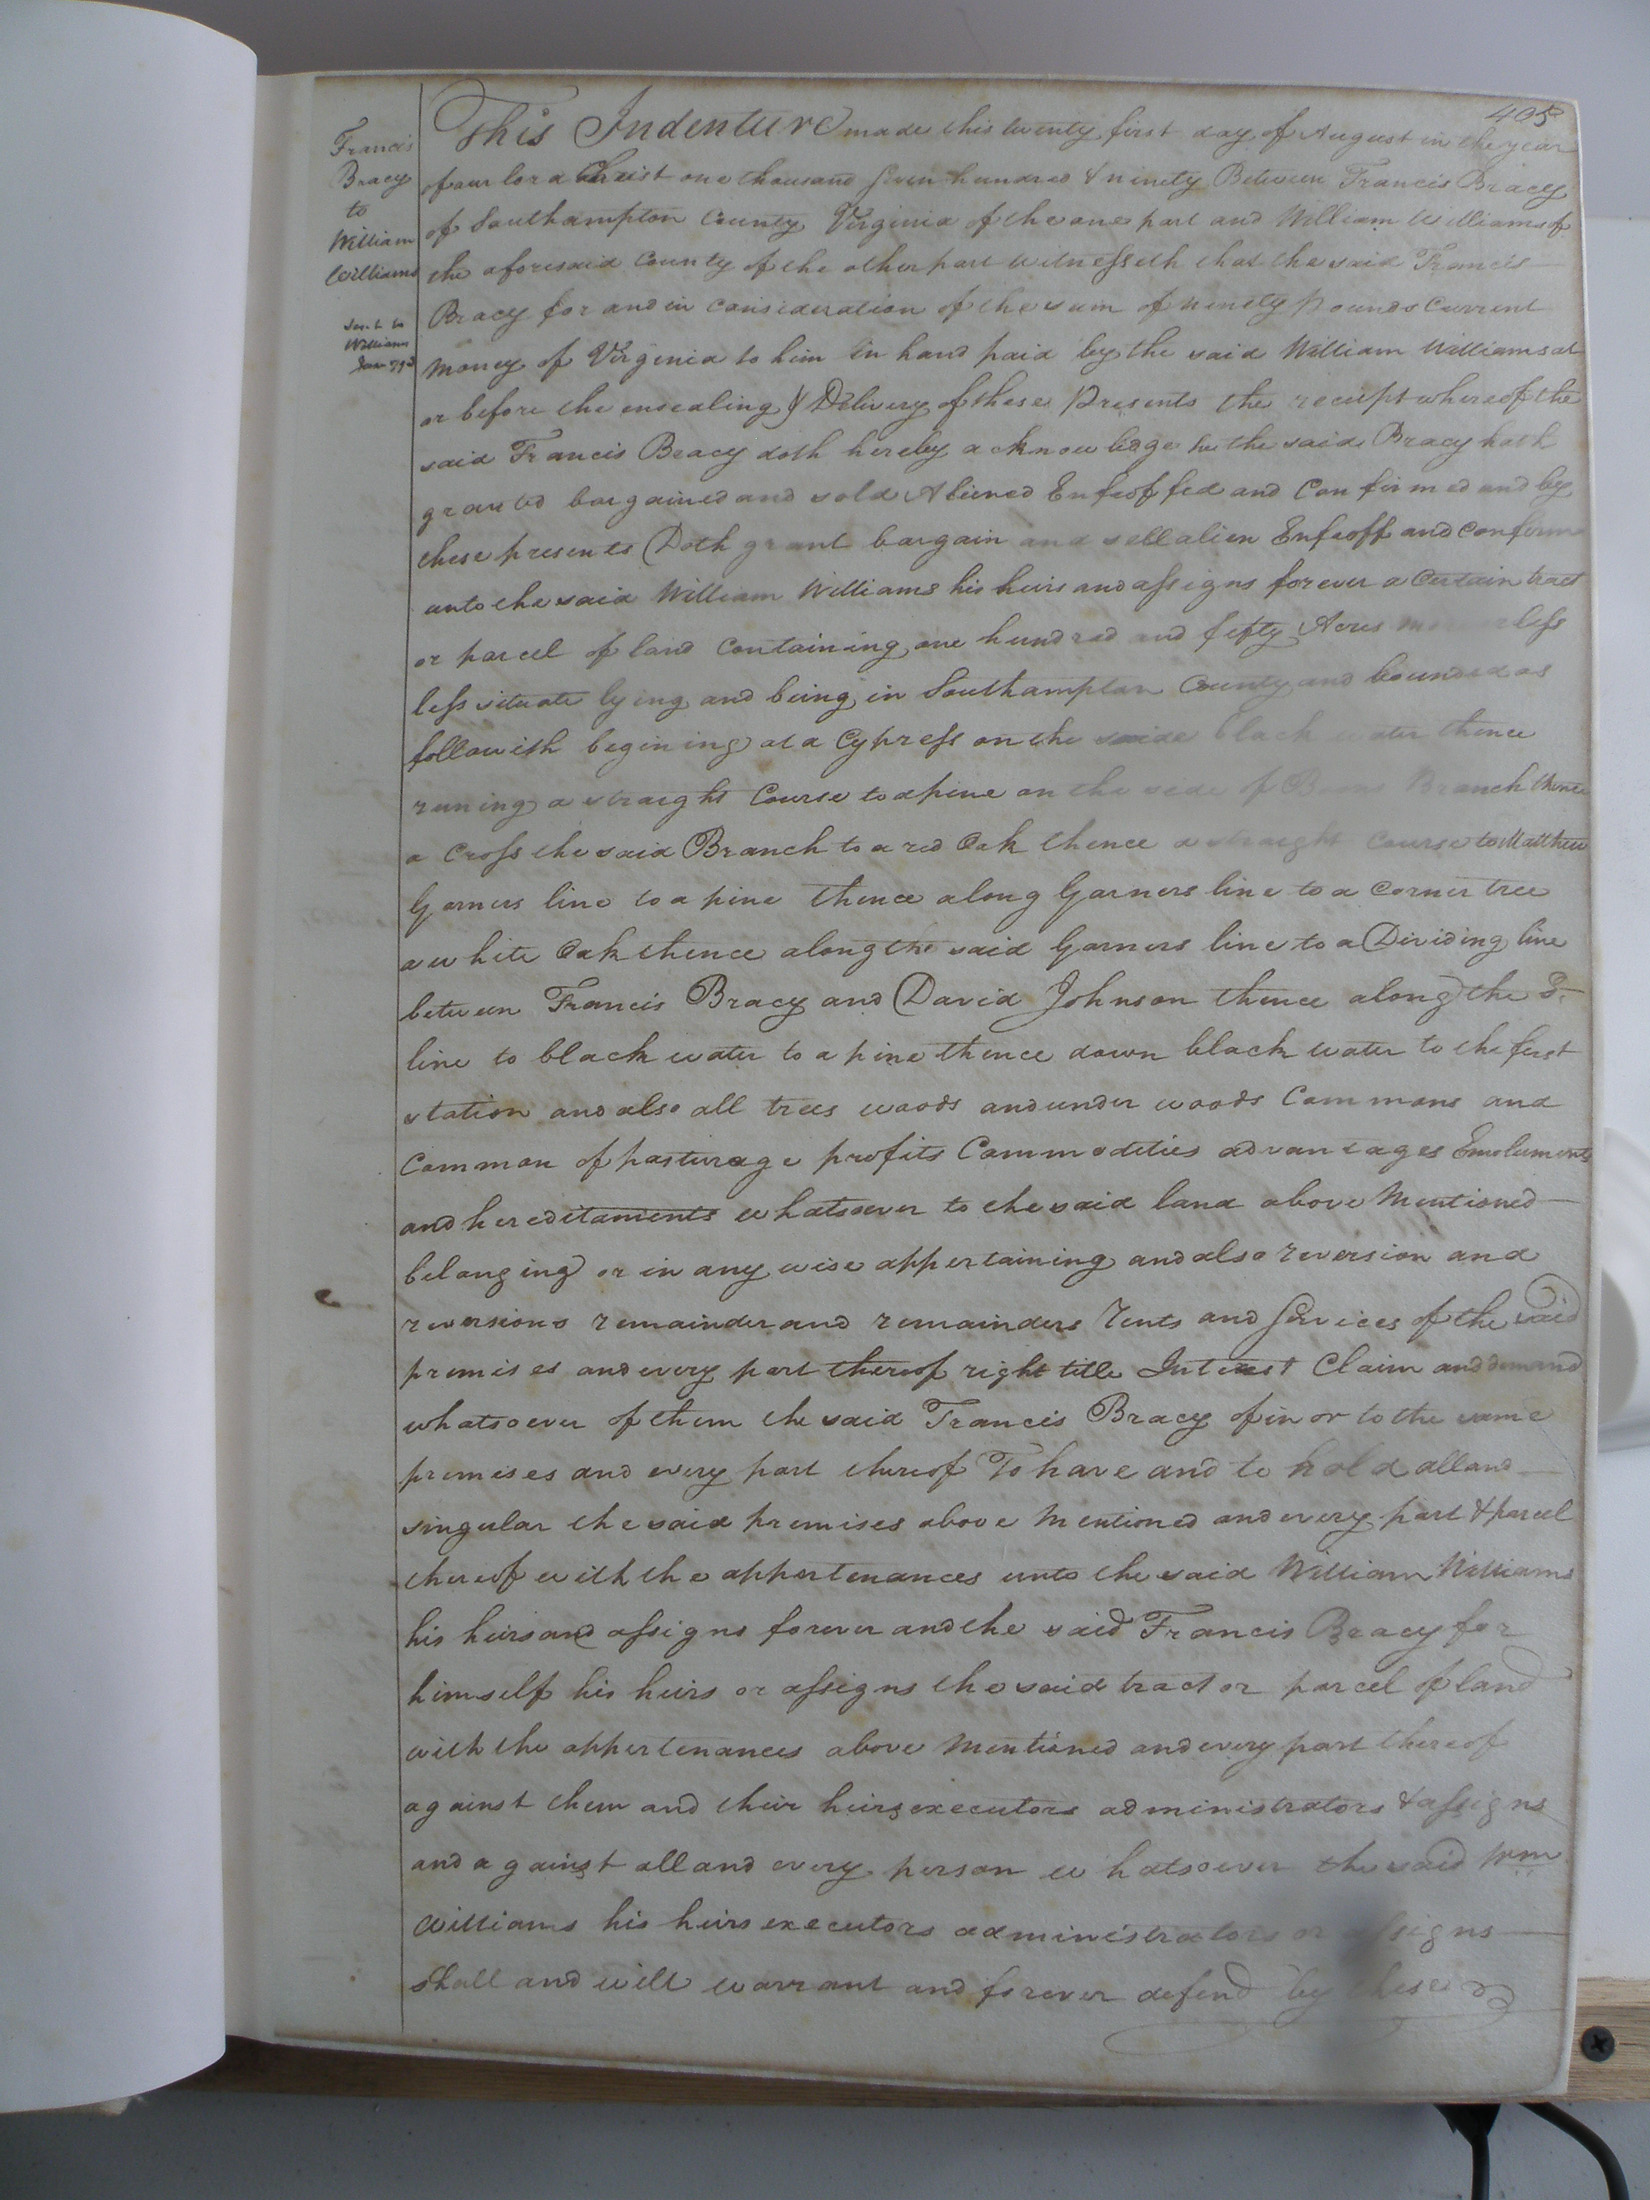 405
Francis
Bracy
to
William
Williams
Sent to
Williams
This Indenture made this twenty first day of August in the year
of our lord Christ one thousand seven hundred & ninety Between Francis Bracy
of Southampton County Virginia of the one part and William Williams of
the aforesaid County of the other part witnesseth that the said Francis
Bracy for and in consideration of the sum of ninety pounds Current
Money of Virginia to him in hand paid by the said William Williams at
or before the ensealing & Delivery of these Presents the receipt whereof the
said Francis Bracy doth hereby acknowledge he the said Bracy hath
granted bargained and sold Aliened Enfeoffed and Confirmed and by
these presents Doth grant bargain and sell alien Enfeoff and Confirm
unto the said William Williams his heirs and assigns forever a Certain tract
or parcel of land Containing one hundred and fifty Acres more or less
less situate lying and being in Southampton County and bounded as
followith begining at a Cypress on the side black water thence
runing a straight Course to a pine on the side of Branch thence
a Cross the said Branch to a red Oak thence a straight Course to Matthew
Garners line to a pine thence along Garners line to a Corner tree
a white Oak thence along the said Garners line to a Dividing line
between Francis Bracy and David Johnson thence along the Sd.
line to black water to a pine thence down black water to the first
station and also all trees woods and under woods Commons and
Common of pasturage profits Commodities advantages Emoluments
and hereditaments whatsoever to the said land above Mentioned
belonging or in any wise appertaining and also reversion and
reversions remainder and remainders rents and Services of the said
premises and every part thereof right title Interest Claim and demand
whatsoever of them the said Francis Bracy of in or to the same
premises and every part thereof To have and to hold all and
singular the said premises above Mentioned and every part & parcel
thereof with the appertenances unto the said William Williams
his heirs and assigns forever and the said Francis Bracy for
himself his heirs or assigns the said tract or parcel of land
with the appertenances above Mentioned and every part thereof
against them and their heirs executors administrators & assigns
and against all and every person whatsoever the said Wm
Williams his heirs executors administrators or assigns
shall and will warrant and forever defend by these